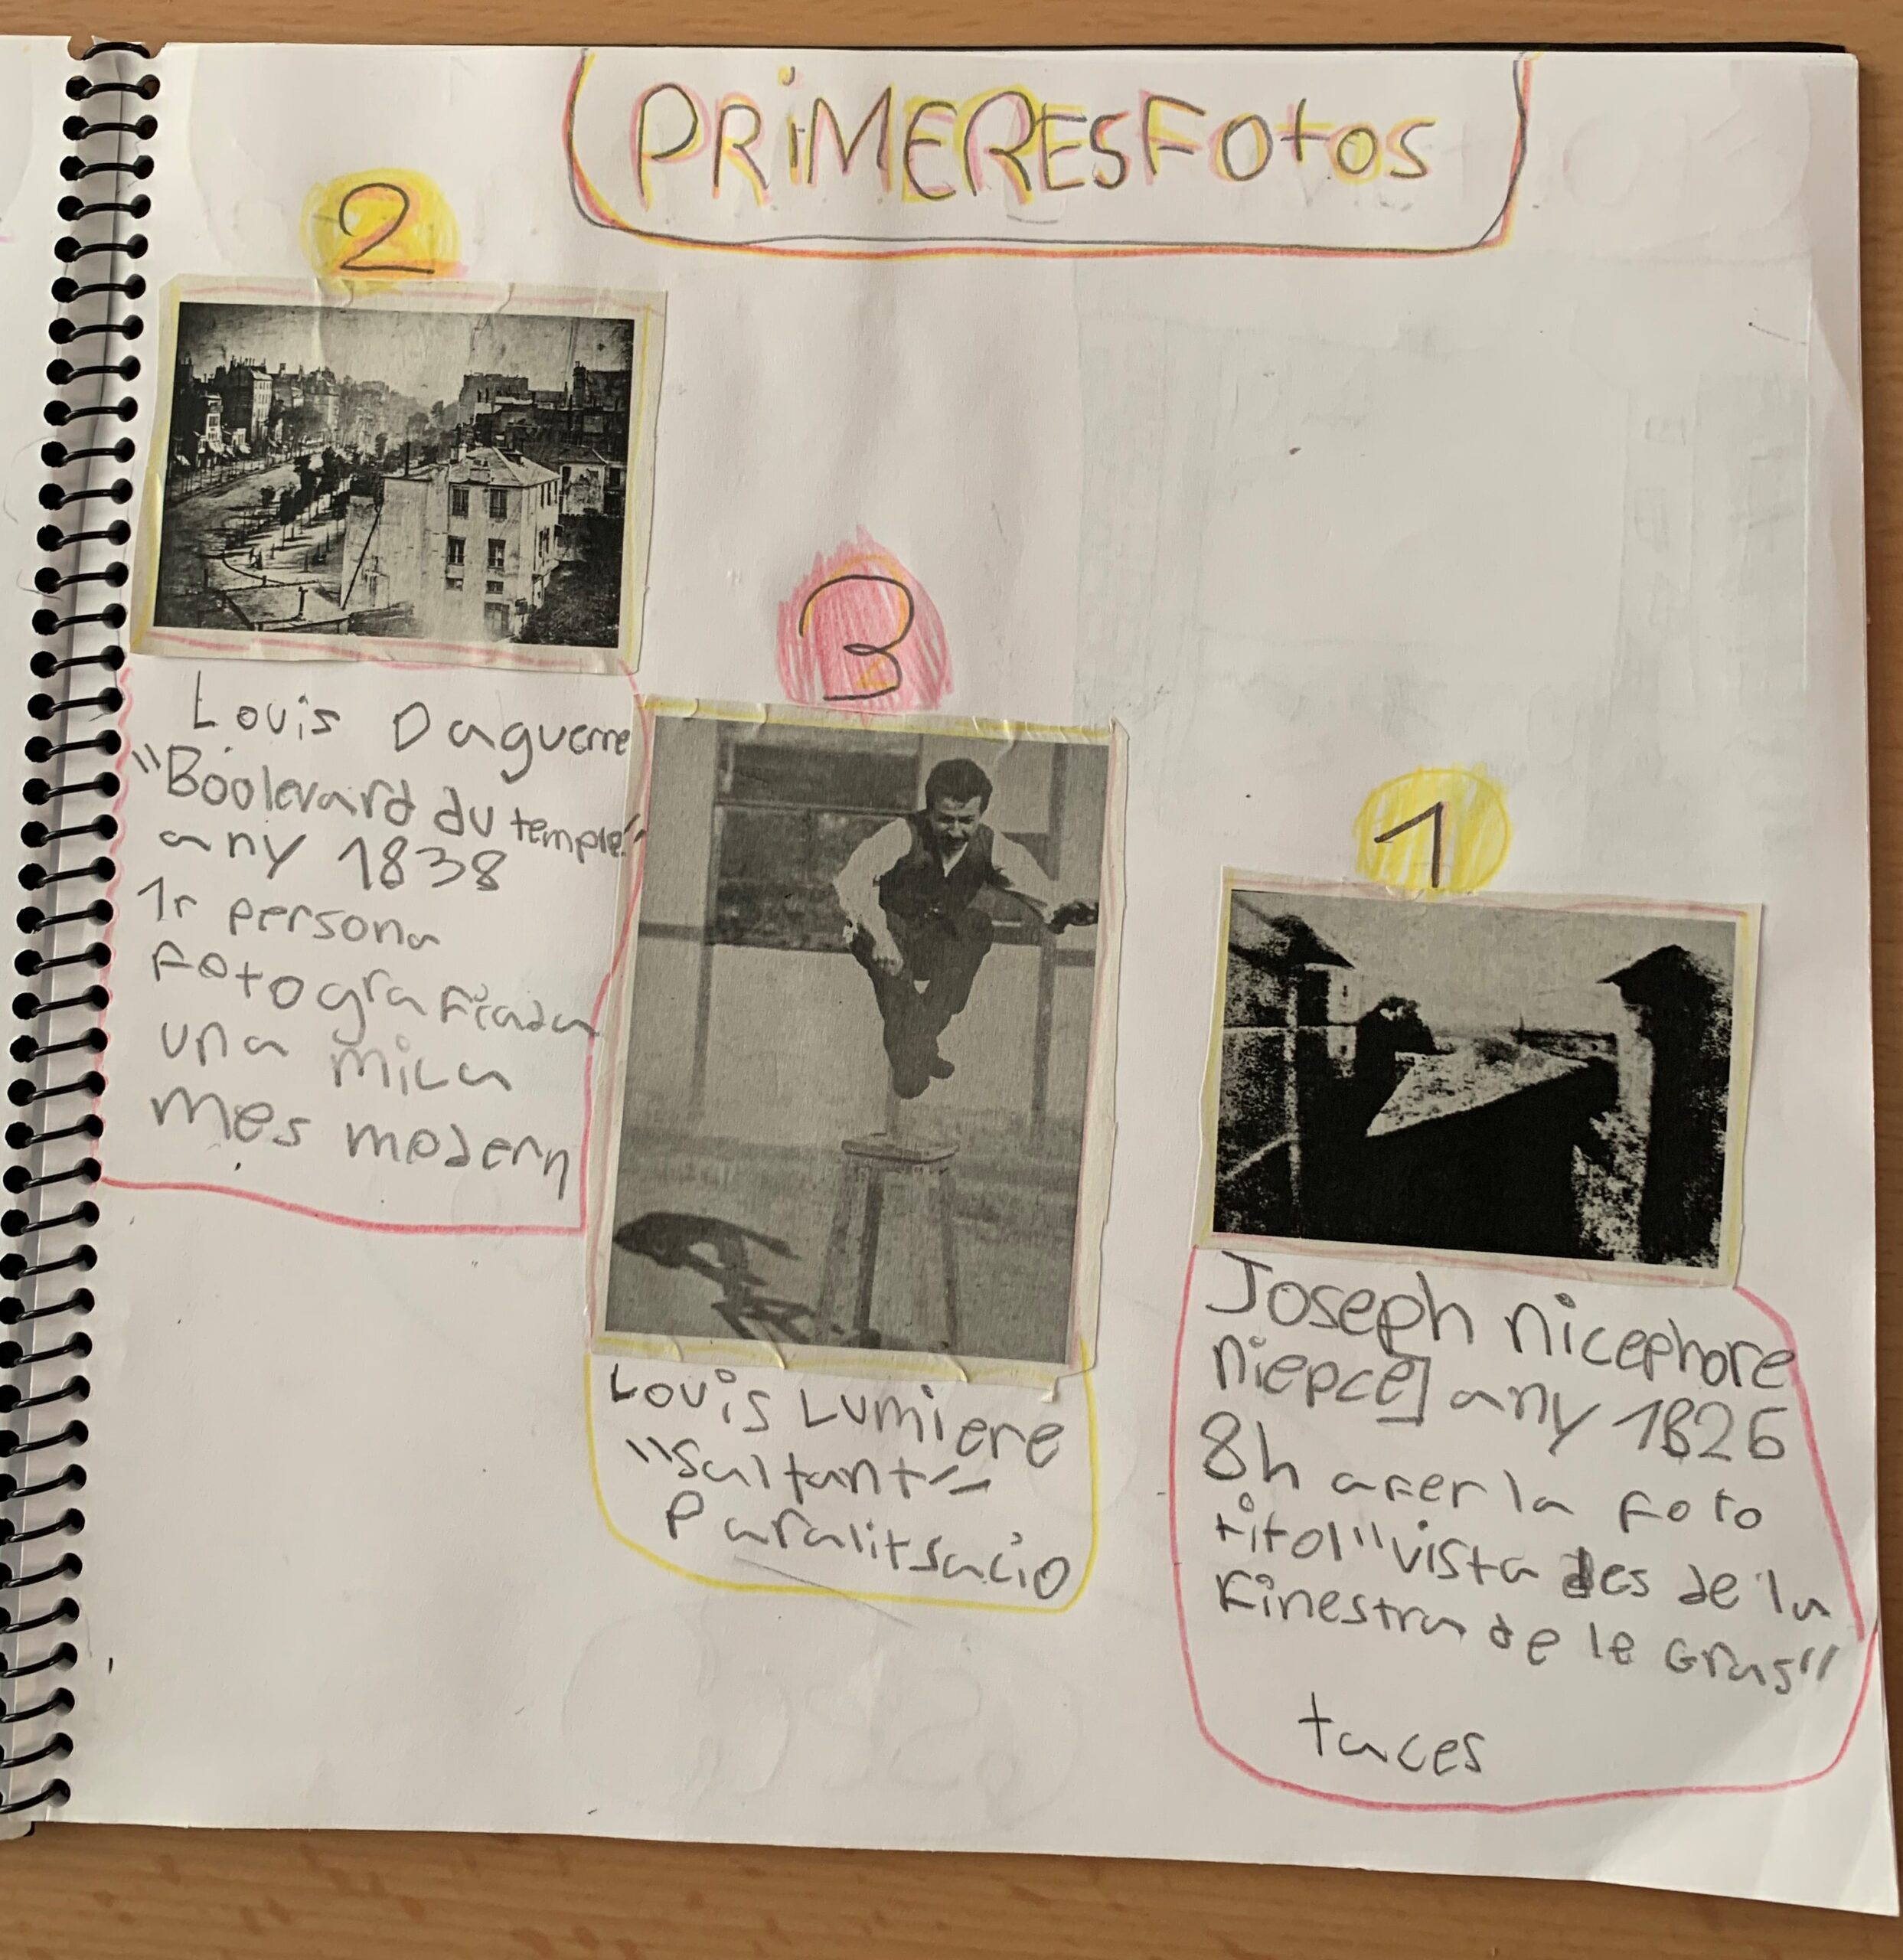 PRiMERESFOtos
2
Louis Daguerre
"Boolevard du temple"
any 1838
1r persona
fotografiada
una mica
mes modern
3
Louis Lumiere
"Saltant"
Paralitsacio
1
Joseph nicephore
niepce] any 1826
8h a fer la foto
titol "vista des de la
Finestra de le Gras"
taces